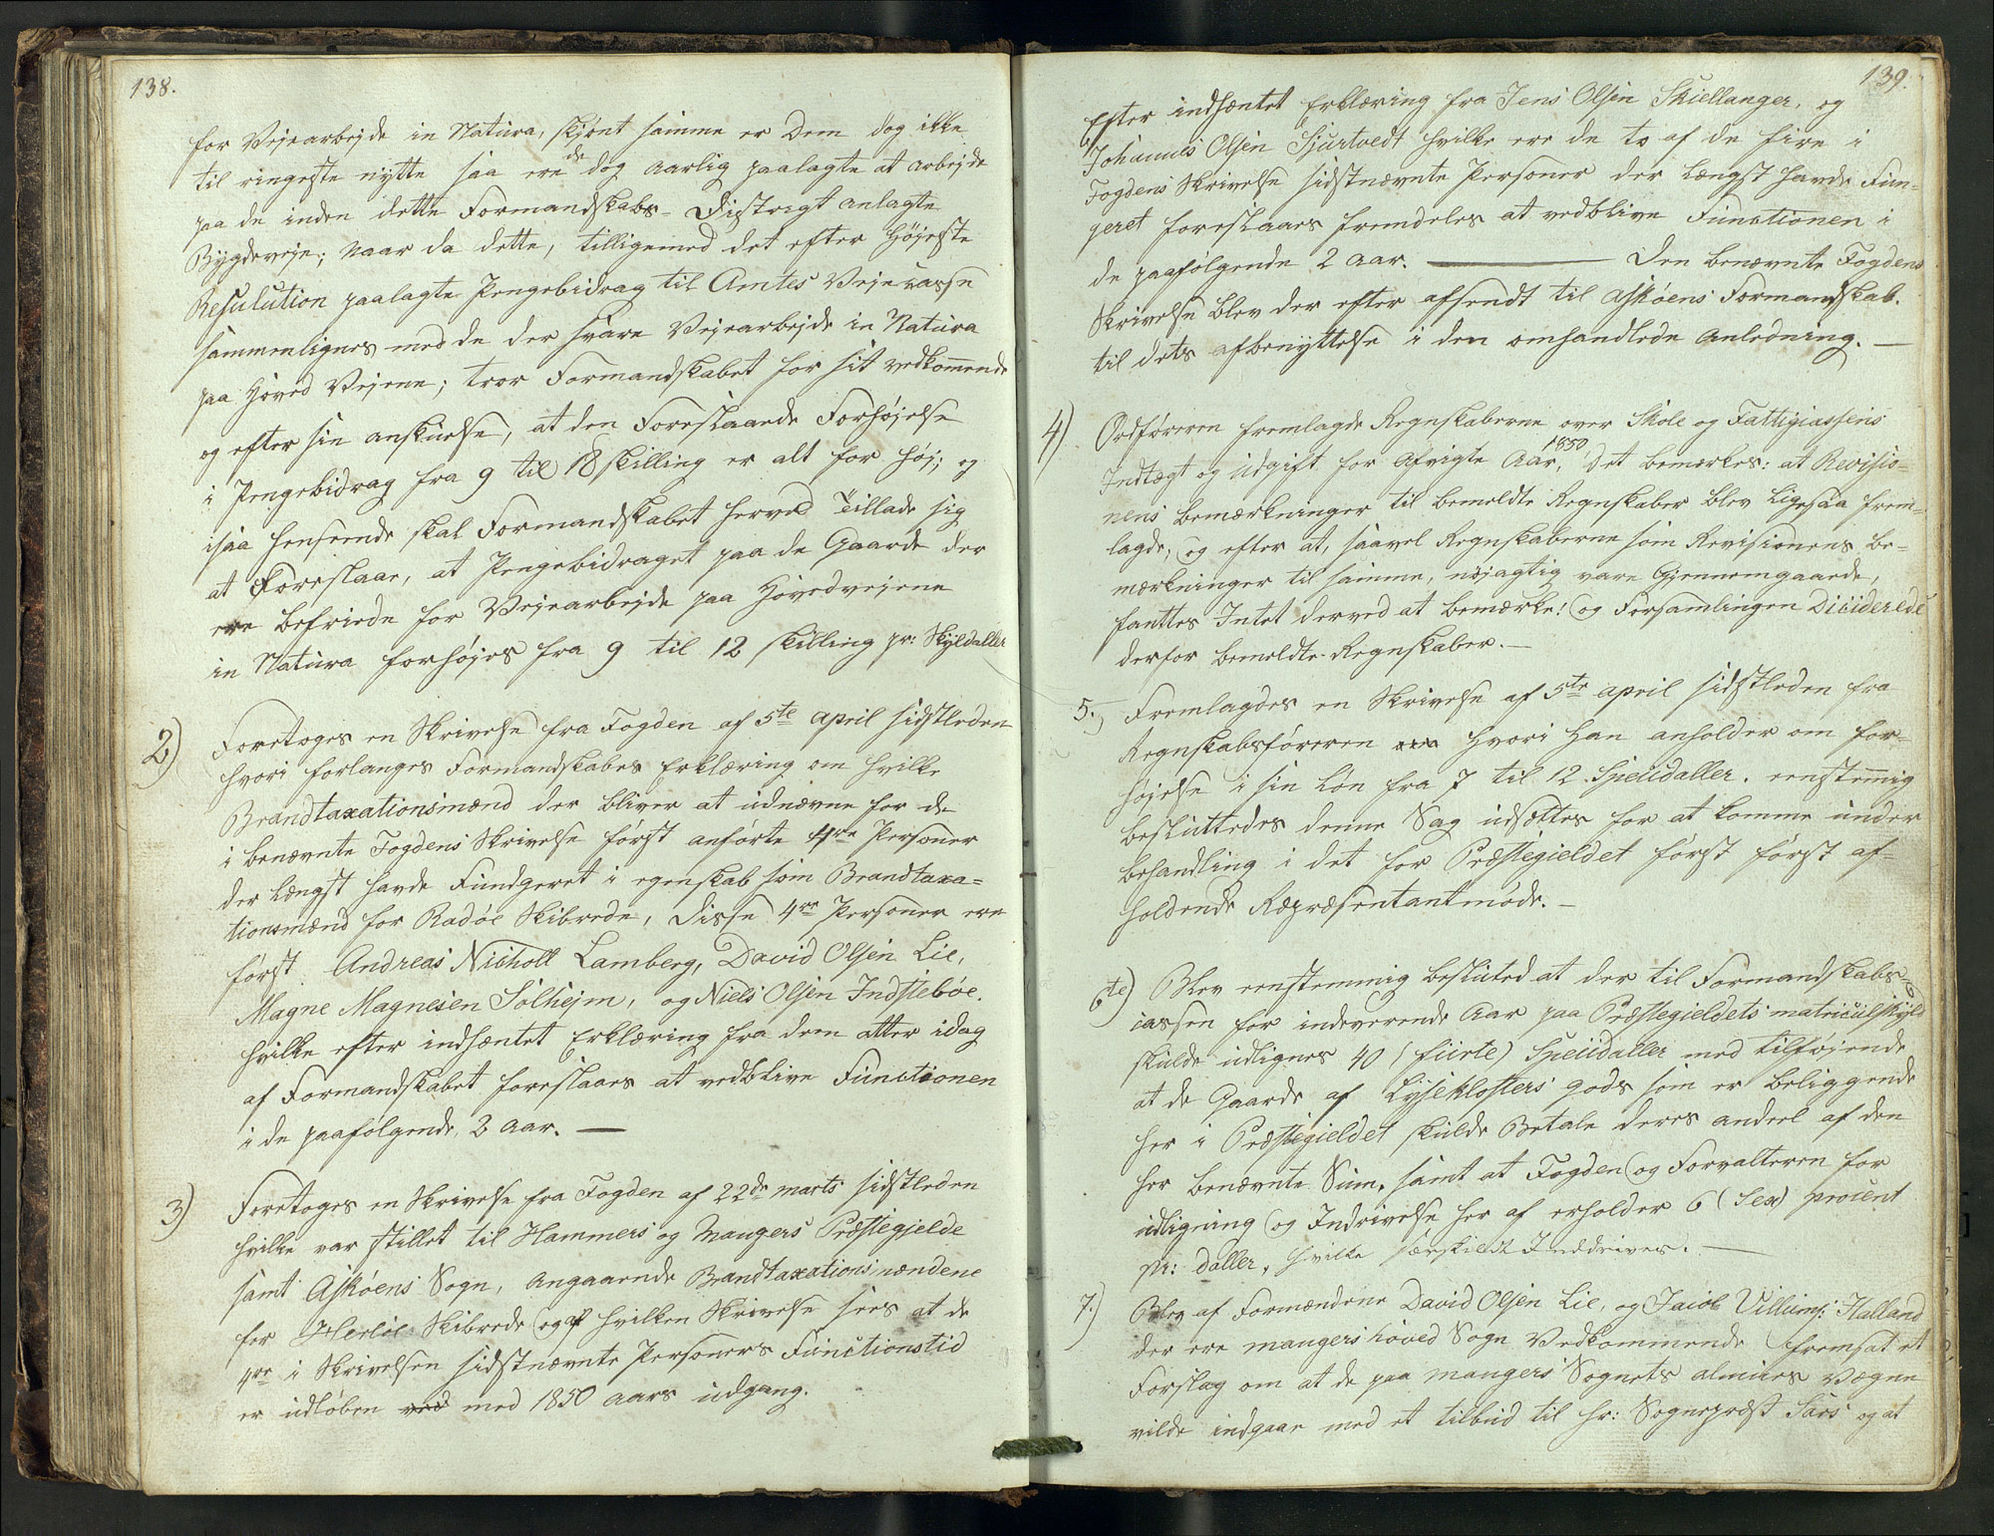 138.
for Vejearbejde in Natura, skjønt samme er Dem dog ikke
til ringeste nytte saa ere de dog aarlig paalagte at arbejde
paa de inden dette Formandskabs-Distrigt anlagte
Bygdeveje; naar da dette, tilligemed det efter Højeste
Resulution paalagte Pengebidrag til Amtes Vejecasse
sammenlignes med de der svare Vejearbejde in Natura
paa Hoved Vejene; troer Formandskabet for sit vedkom̅ende
og efter sin anskuelse, at den Foreslaaede Forhøjelse
i Pengebidrag fra 9 til 18 skilling er alt for høj; og
isaa henseende skal Formandskabet herved Tillade sig
at Foreslaae, at Pengebidraget paa de Gaarde der
ere befriede for Vejearbejde paa Hovedvejene
in Natura forhøjes fra 9 til 12 skilling pr: Skyldaller
2) Foretoges en Skrivelse fra Fogden af 5te april sidstleden
hvori forlanges Formandskabes Erklæring om hvilke
Brandtaxationsmænd der bliver at udnævne for de
i benævnte Fogdens Skrivelse først anførte 4re Personer
der længst havde Fundgeret i egenskab som Brandtaxa=
tionsmænd for Radøe Skibrede, Disse 4re Personer ere
først Andreas Nicholl Lamberg, David Olsen Lie,
Magne Magnesen Solhejm, og Niels Olsen Indstebøe.
hvilke efter indhæntet Erklæring fra dem atter idag
af Formandskabet foreslaaes at vedblive Functionen
i de paafølgende 2 aar. —
3) Foretoges en Skrivelse fra Fogden af 22de marts sidstleden
hvilke var stillet til Hammers og Mangers Præstegjelde
samt Askøens Sogn, angaaende Brandtaxationsmændene
for Herløe Skibrede og af hvilken Skrivelse sees at de
4re i Skrivelsen sidstnævnte Personers Functionstid
er udløben ved med 1850 aars udgang.
139.
Efter indhæntet Erklæring fra Jens Olsen Skiellanger, og
Johannes Olsen Sjurtvedt hvilke ere de to af de fire i
Fogdens Skrivelse sidstnævnte Personer der længst havde Fun=
geret foreslaaes fremdeles at vedblive Functionen i
de paafølgende 2 aar. — Den benævnte Fogdens
Skrivelse blev der efter afsendt til Askøens Formandskab.
til dets afbenyttelse i den omhandlede anledning. —
4) Ordføreren fremlagde Regnskaberne over Skole og Fattigcassens
Indtægt og udgift for afvigte aar, 1850 det bemærkes: at Revisio=
nens bemærkninger til bemeldte Regnskaber blev ligesaa frem=
lagde, og efter at, saavel Regnskaberne som Revisionens be=
mærkninger til samme, nøjagtig vare Gjennemgaaede,
fanttes Intet derved at bemærke! og Forsamlingen Diciderede
derfor bemeldte Regnskaber. —
5.) Fremlagdes en Skrivelse af 5te april sidstleden fra
Regnskabsføreren hvori Han anholder om for=
højelse i sin Løn fra 7 til 12 Speciedaller. eenstem̅ig
besluttedes denne Sag udsættes for at komme under
behandling i det for Præstegieldet først først af=
holdende Repræsentantmøde. —
6te) Blev eenstemmig besluted at der til Formandskabs=
cassen for indeværende Aar paa Præstegieldets matriculskyld
skulde udlignes 40 (fiirte) Speciedaller med tilføjende
at de Gaarde af Lyseklosters gods som er beliggende
her i Præstegieldet skulde Betale deres andeel af den
her benævnte Sum, samt at Fogden og Forvalteren for
udligning og Indrivelse her af erholder 6 (Sex) procent
pr: daller, hvilke særskildt Inddrives. —
7.) Blev af Formændene David Olsen Lie, og Jacob Villums: Halland
der ere mangers hoved Sogn Vedkommende fremsat et
Forslag om at de paa mangers Sognets almues vægne
vilde indgaae med et tilbud til Hr: Sognepræst Sars og at